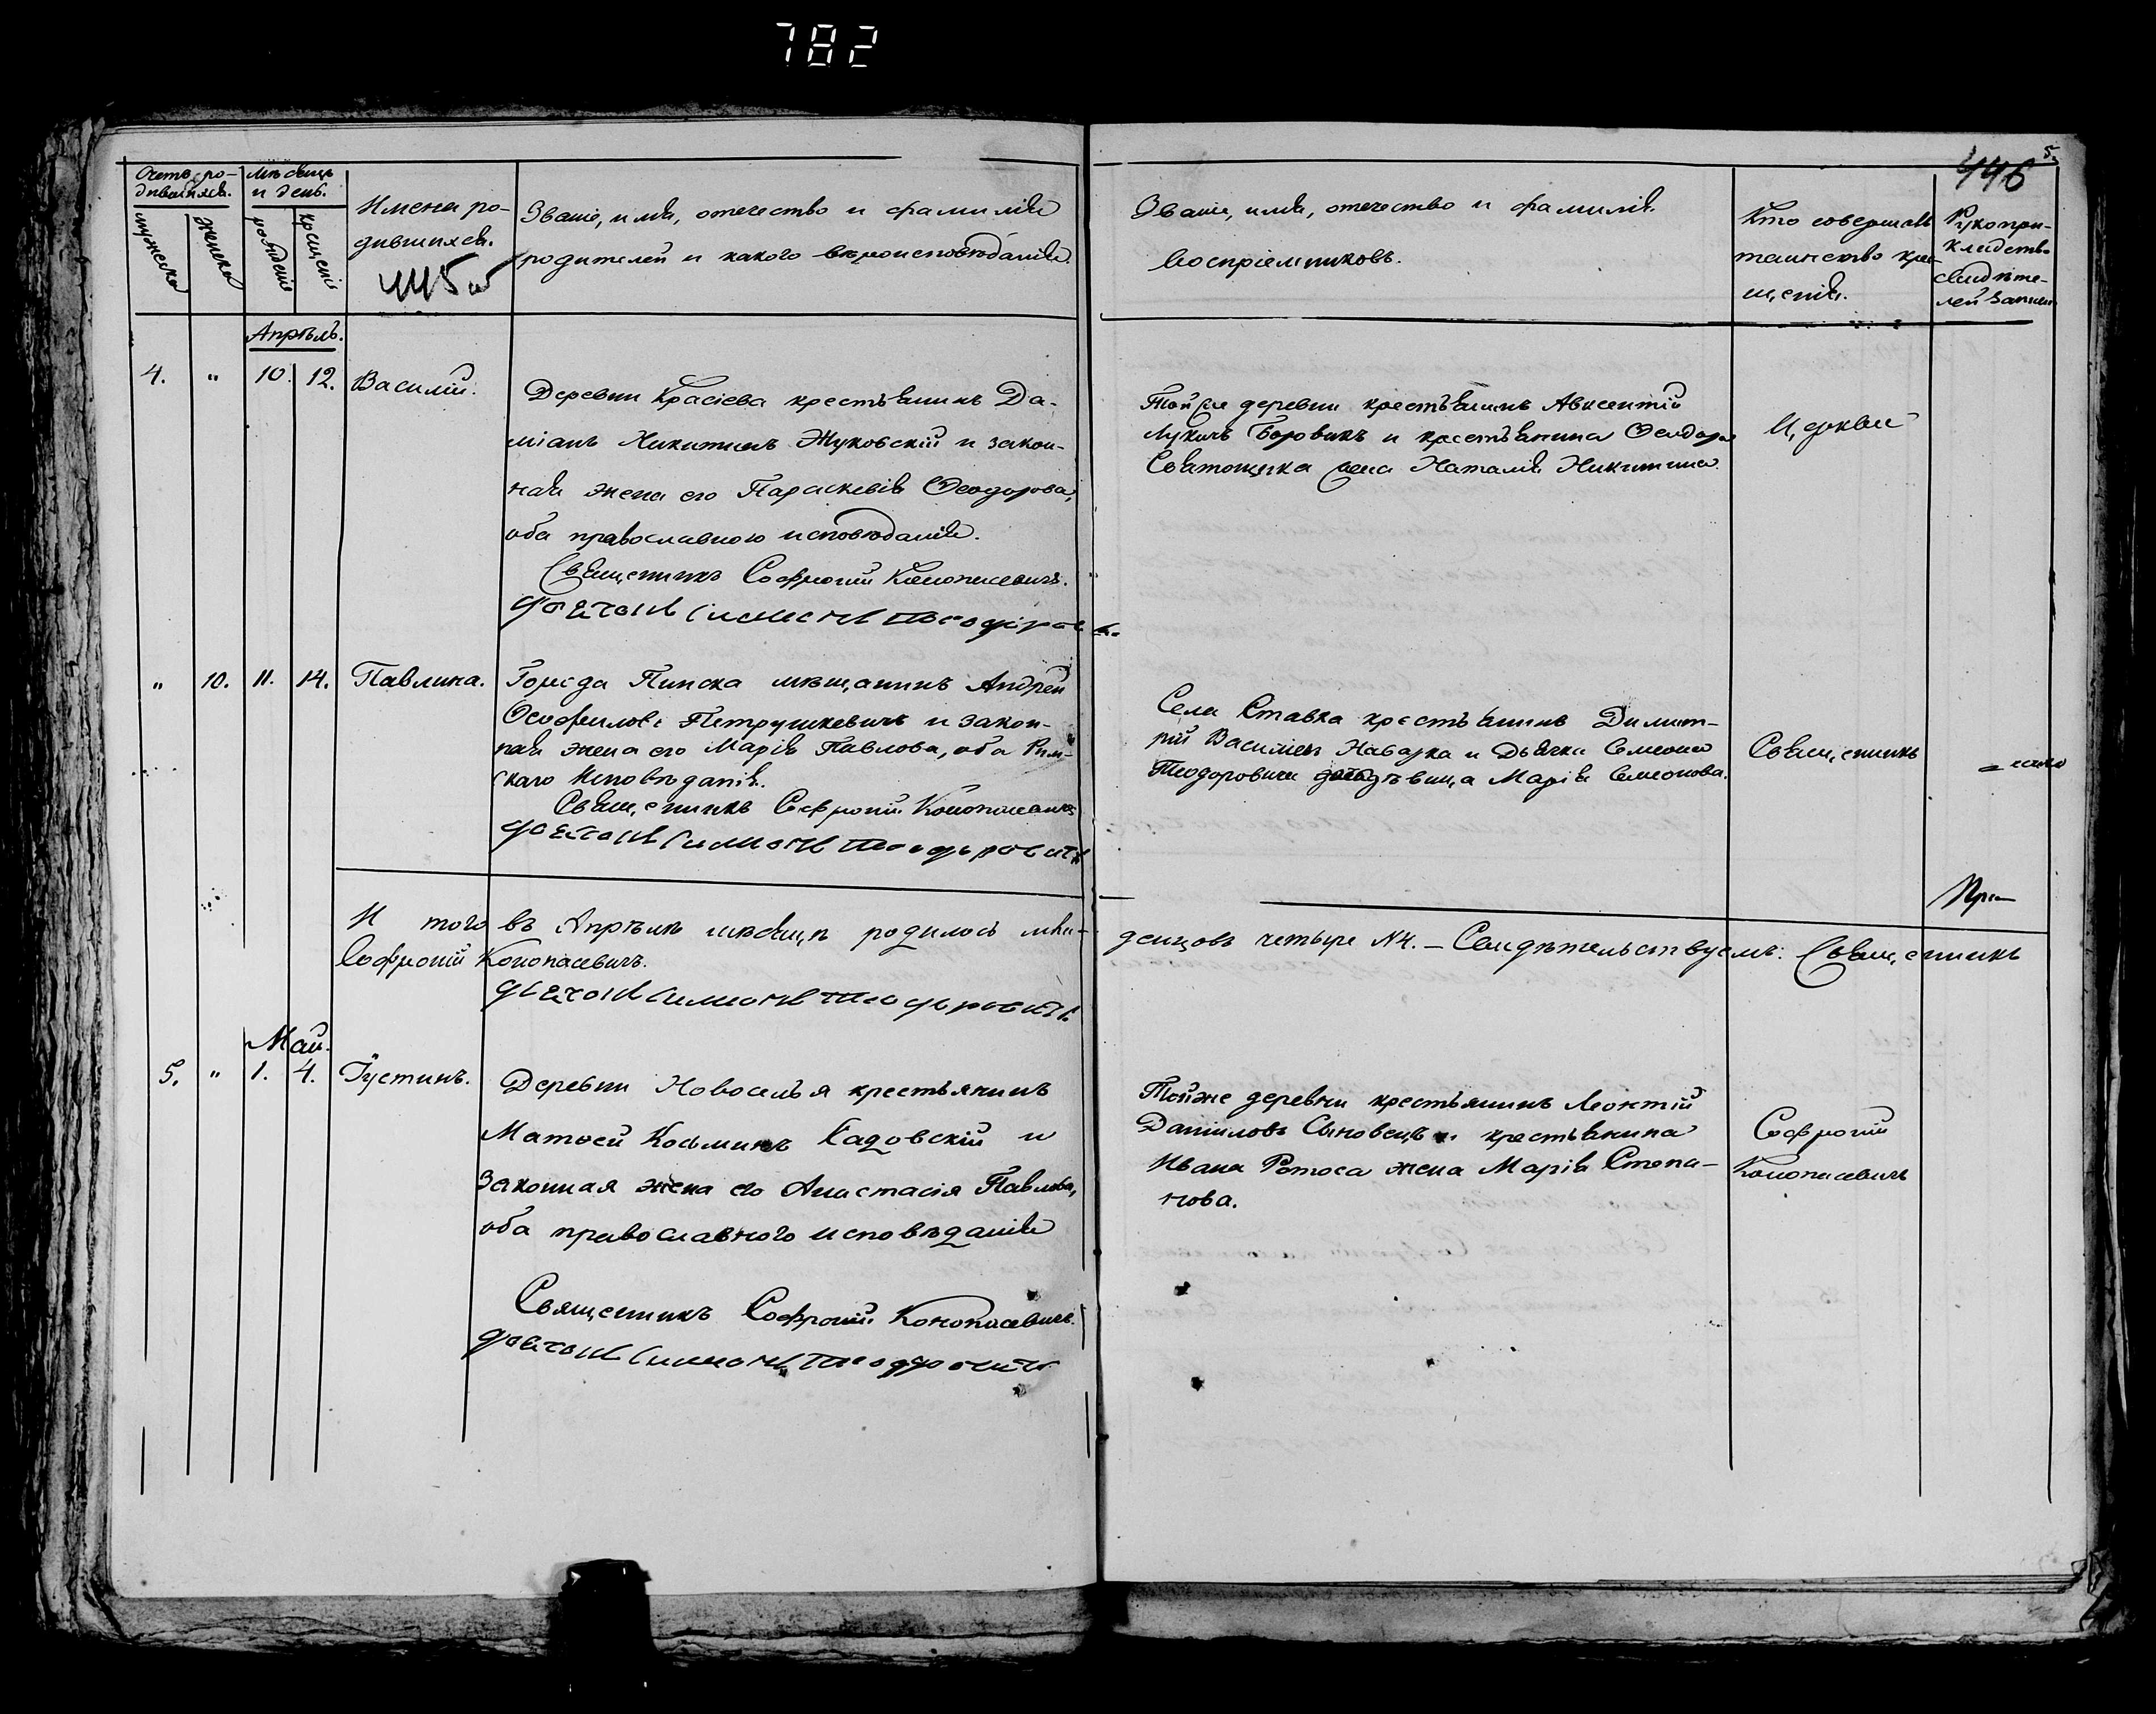 782
5.
446
Счетъ ро-
дившихся.
мужеска
женска
Мѣсяцъ
и день.
рожденія
крещенія
Имена ро-
дившихся.
445 об
Званіе, имя, отечество и фамилія
родителей и какого вѣроисповѣданія.
Званіе, имя, отечество и фамилія
воспріемниковъ.
Кто совершалъ
таинство кре-
щенія.
Рукопри-
кладство
свидѣте-
лей записи
Апрѣль.
4. " 10. 12. Василій.
Деревни Красіева крестьянинъ Да-
міанъ Никитинъ Жуковскій и закон-
ная жена его Параскевія Ѳеодорова,
оба православного исповѣданія.
Священникъ Софроній Кононасевичъ.
Дьячокъ Симеонъ Теодоровичъ
Той же деревни крестьянинъ Авксентій
Лукичъ Боровикъ и крестьянина Ѳеодора
жена Наталія Никитина.
Церкви
" 10. 11. 14. Павлина.
Города Пинска мѣщанинъ Андрей
Ѳеофиловъ Петрушкевичъ и закон-
ная жена его Марія Павлова, оба Рим-
скаго Исповѣданія.
Священникъ Софроній Кононасевичъ
Дьячокъ Симеонъ Теодоровичъ
Села Ставка крестьянинъ Димит-
рій Васильевъ и Дьячка Симеона
Теодоровича дѣвица Марія Симеонова.
Священникъ
И того въ Апрѣлѣ мѣсяцѣ родилось мла-
денцовъ четыре №4. – Свидѣтельствуемъ: Священникъ
Софроній Кононасевичъ.
Дьячокъ Симеонъ Теодоровичъ
Май.
5. " 1. 4. Іустинъ.
Деревни Новоселья крестьянинъ
Матѳей Косьминъ Садовскій и
Законная жена его Анастасія Павлова,
оба православного исповѣданія
Священникъ Софроній Кононасевичъ.
Дьячокъ Симеонъ Теодоровичъ
Тойже деревни крестьянинъ Леонтій
Даніиловъ и крестьянина
Ивана жена Марія Степа-
нова.
Софроній
Кононасевичъ